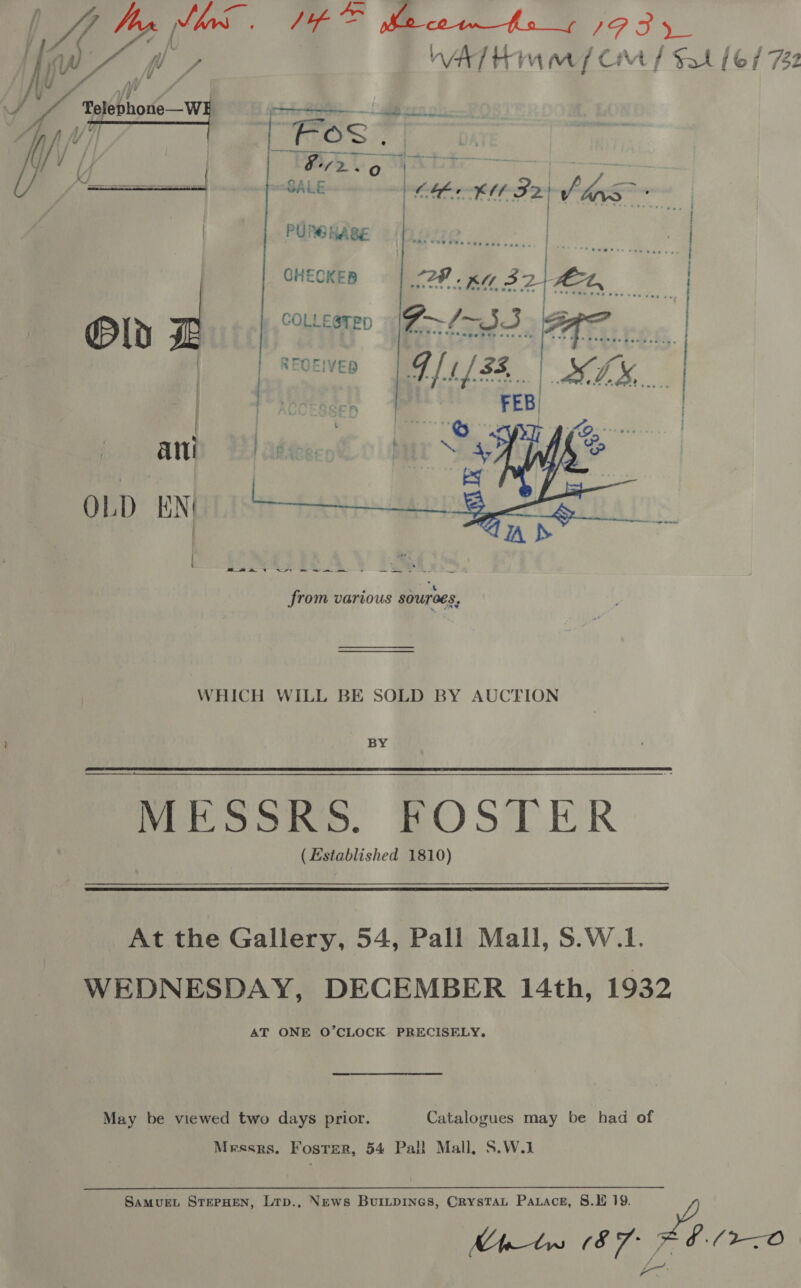 14th December 1932
WA/HMM/CM/Sal/6/732
Telephone—WH
FOS.
£8.12.0
SALE
PURCHASE
CHECKED
COLLECTED 9-1-33
RECEIVED 9/1/33
ACCESSED FEB
Old D
and
OLD EN
from various sources,
WHICH WILL BE SOLD BY AUCTION
BY
MESSRS. FOSTER
(Established 1810)
At the Gallery, 54, Pall Mall, S.W.1.
WEDNESDAY, DECEMBER 14th, 1932
AT ONE O'CLOCK PRECISELY.
May be viewed two days prior. Catalogues may be had of
MESSRS. FOSTER, 54 Pall Mall, S.W.1
SAMUEL STEPHEN, LTD., NEWS BUILDINGS, CRYSTAL PALACE, S.E 19.
£8.12.0